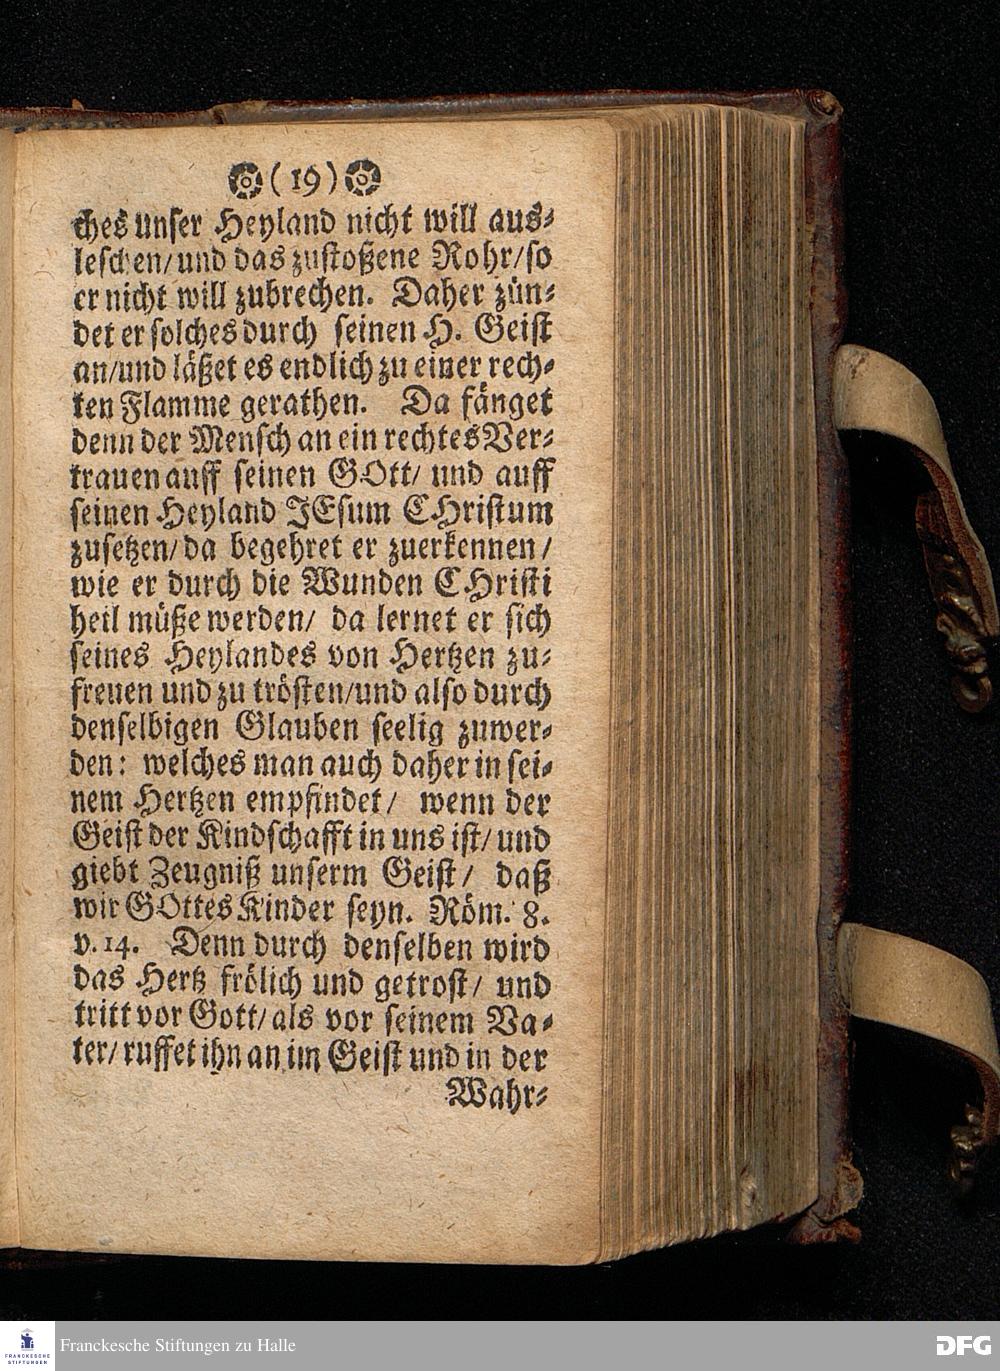 (19)
ches unser Heyland nicht will aus-
leschen/und das zustoßene Rohr/so
er nicht will zubrechen. Daher zün-
det er solches durch seinen H. Geist
an/und läßet es endlich zu einer rech-
ten Flamme gerathen. Da fänget
denn der Mensch an ein rechtes Ver-
trauen auff seinen GOtt/ und auff
seinen Heyland JEsum CHristum
zusetzen/da begehret er zuerkennen/
wie er durch die Wunden CHristi
heil müße werden/ da lernet er sich
seines Heylandes von Hertzen zu-
freuen und zu trösten/und also durch
denselbigen Glauben seelig zuwer-
den: welches man auch daher in sei-
nem Hertzen empfindet/ wenn der
Geist der Kindschafft in uns ist/und
giebt Zeugniß unserm Geist/ daß
wir GOttes Kinder seyn. Röm. 8.
v. 14. Denn durch denselben wird
das Hertz frölich und getrost/ und
tritt vor Gott/als vor seinem Va-
ter/ruffet ihn an im Geist und in der
Wahr-
FRANCKESCHE
STIFTUNGEN
Franckesche Stiftungen zu Halle
DFG